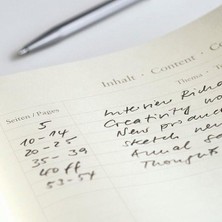 Inhalt · Content · Co
Seiten / Pages Thema · T
5 Interview Rich
10-14 Creativity wo
20-25 New produc
35-39 Sketch new
40 ff Annual Sa
53-54 Thoughts